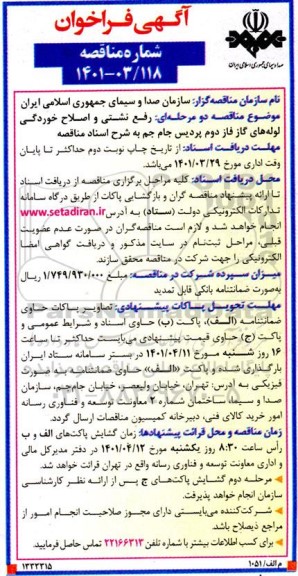 آگهی فراخوان
شماره مناقصه
۱۴۰۱-۰۳/۱۱۸
صدا و سیمای جمهوری اسلامی ایران
نام سازمان مناقصه‌گزار: سازمان صدا و سیمای جمهوری اسلامی ایران
موضوع مناقصه دو مرحله‌ای: رفع نشتی و اصلاح خوردگی
لوله‌های گاز فاز دوم پردیس جام جم به شرح اسناد مناقصه
مهلت دریافت اسناد: از تاریخ چاپ نوبت دوم حداکثر تا پایان
وقت اداری مورخ ۱۴۰۱/۰۳/۲۹ می‌باشد.
محل دریافت اسناد: کلیه مراحل برگزاری مناقصه از دریافت اسناد
تا ارائه پیشنهاد مناقصه گران و بازگشایی پاکات از طریق درگاه سامانه
تدارکات الکترونیکی دولت (ستاد) به آدرس www.setadiran.ir
انجام خواهد شد و لازم است مناقصه‌گران در صورت عدم عضویت
قبلی، مراحل ثبت‌نام در سایت مذکور و دریافت گواهی امضا
الکترونیکی را جهت شرکت در مناقصه محقق سازند.
میزان سپرده شرکت در مناقصه: مبلغ ۱/۷۴۹/۹۳۰/۰۰۰ ریال
به‌صورت ضمانتنامه بانکی قابل تمدید
مهلت تحویل پاکات پیشنهادی: تصاویر پاکات حاوی
ضمانتنامه (الف)، پاکت (ب) حاوی اسناد و شرایط عمومی و
پاکت (ج) حاوی قیمت پیشنهادی می‌بایست حداکثر تا ساعت
۱۶ روز شنبه مورخ ۱۴۰۱/۰۴/۱۱ در بستر سامانه ستاد ایران
بارگذاری شده و پاکت (الف) حاوی ضمانتنامه به صورت
فیزیکی به آدرس: تهران، خیابان ولیعصر، خیابان جام‌جم، سازمان
صدا و سیما، ساختمان شماره معاونت توسعه و فناوری رسانه
امور خرید کالای فنی، دبیرخانه کمیسیون مناقصات ارسال گردد.
زمان مناقصه و محل قرائت پیشنهادها: زمان گشایش پاکت‌های الف و ب
رأس ساعت ۸:۳۰ روز یکشنبه مورخ ۱۴۰۱/۰۴/۱۲ در دفتر مدیرکل مالی
و اداری معاونت توسعه و فناوری رسانه واقع در تهران قرائت خواهد شد.
مرحله دوم گشایش پاکت‌های ج پس از ارائه نظر کارشناسی
سازمان انجام خواهد پذیرفت.
شرکت‌کننده می‌بایستی دارای مجوز صلاحیت انجام امور از
مراجع ذیصلاح باشد.
برای کسب اطلاعات بیشتر با شماره تلفن ۲۲۱۶۶۳۱۳ تماس حاصل فرمایید.
م الف/ ۱۰۵۱
۱۳۳۳۳۱۵